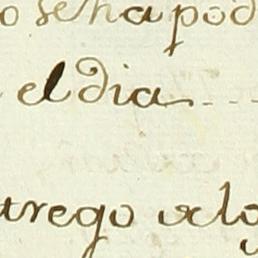 o se ha pod
el dia
trego